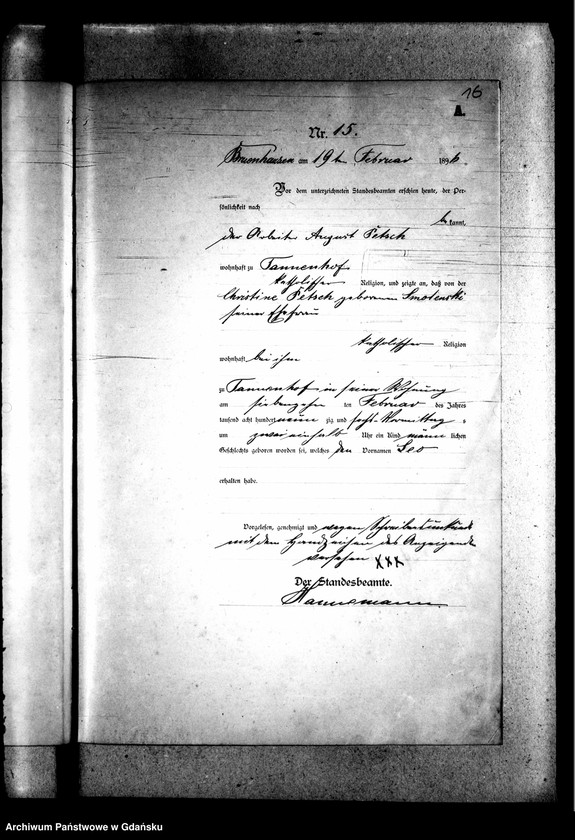 16
A.
Nr. 15.
am 19t Februar 1896.
Vor dem unterzeichneten Standesbeamten erschien heute, der Per-
sönlichkeit nach
be kannt,
der Arbeiter August Petsch
wohnhaft zu Tannenhof
katholischer Religion, und zeigte an, daß von der
Christine Petsch geborenen Smolenski
seiner Ehefrau
katholischer Religion
wohnhaft bei ihm
zu Tannenhof in seiner Wohnung
am siebenzehn ten Februar des Jahres
tausend acht hundert neun zig und sechs Vormittag s
um zwei einhalb Uhr ein Kind männ lichen
Geschlechts geboren worden sei, welches den Vornamen Leo
erhalten habe.
Vorgelesen, genehmigt und wegen Schreibensunkunde
mit dem Handzeichen des Anzeigenden
versehen XXX
Der Standesbeamte.
Hannemann
Archiwum Państwowe w Gdańsku